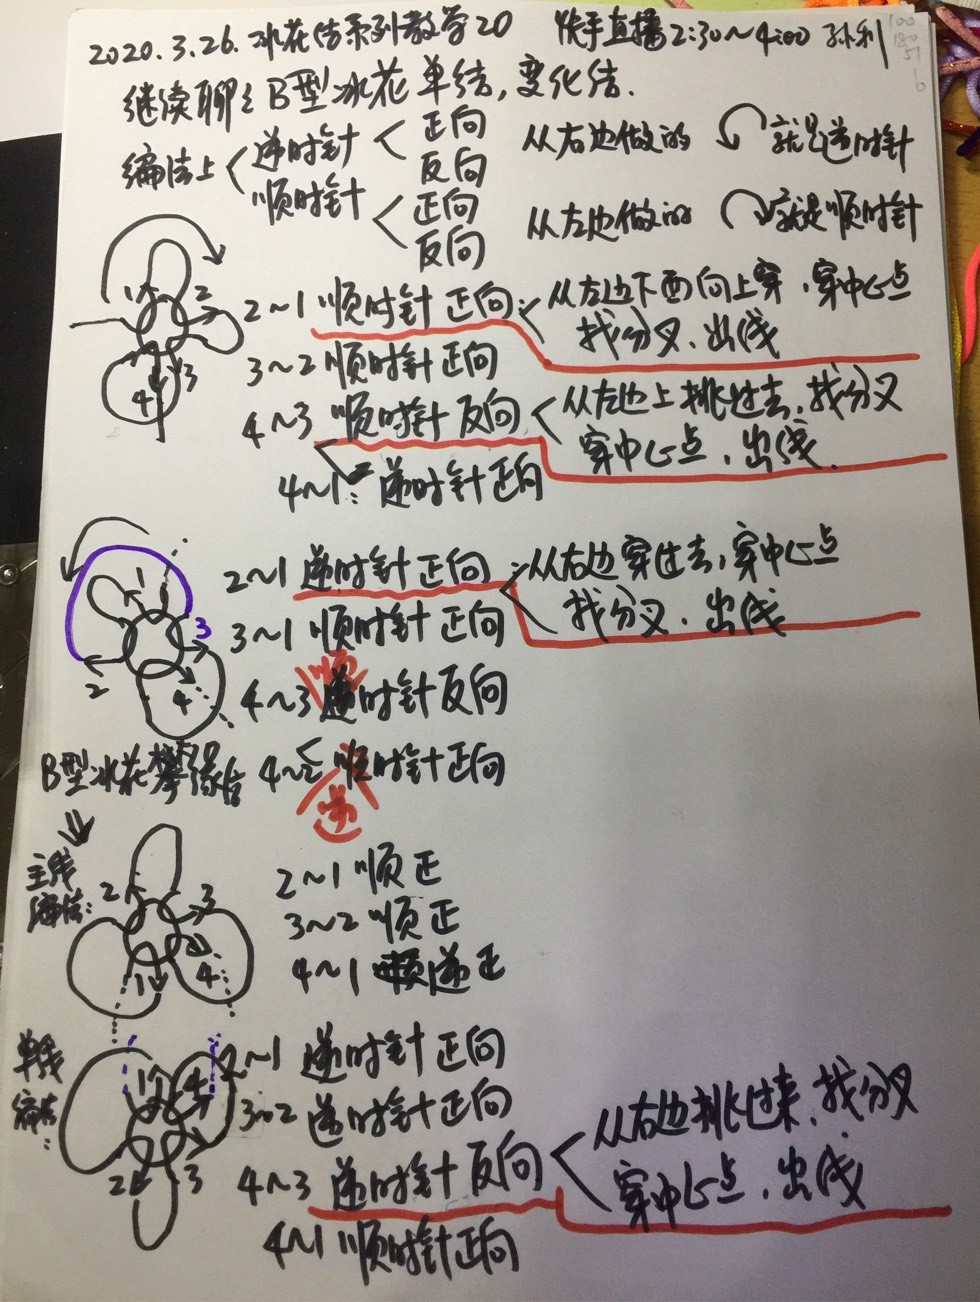 2020.3.26. 冰花结系列教学20 快手直播2:30~4:00 孙利
继续聊聊B型冰花单结,变化结.
编结上 递时针 正向 从右边做的 就是逆时针
反向
顺时针 正向 从左边做的 就是顺时针
反向
1 2 3 4
2~1 顺时针 正向: 从左边下面向上穿,穿中心点
找分叉、出线
3~2 顺时针 正向
4~3 顺时针 反向 从左边上挑过去,找分叉
穿中心点,出线.
4~1: 递时针正向
1 2 3 4
2~1 递时针正向: 从右边穿过去,穿中心点
找分叉.出线
3~1 顺时针正向
顺
4~3 递时针反向
B型冰花攀缘结 4~2 顺时针正向
逆
主线
编结:
1 2 3 4
2~1 顺正
3~2 顺正
4~1 递正
单线
编结:
1 2 3 4
2~1 递时针正向
3~2 递时针正向
4~3 递时针反向 从右边挑过来,找分叉
穿中心点,出线
4~1 顺时针正向